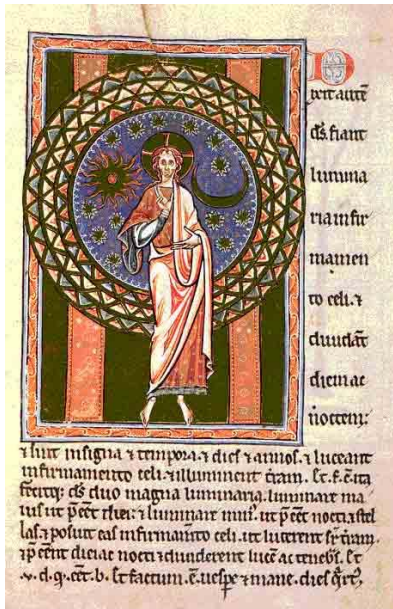 D
ixit autē
d̄s. fiant
lumina
ria in fir
mamen
to celi. ⁊
diuidāt
diem ac
noctem;
⁊ sint in signa ⁊ tempora. ⁊ dies ⁊ annos. ⁊ luceant
in firmamento celi. ⁊ illuminent t̄ram. Et. f. ē. ita
fecitq; d̄s duo magna luminaria. luminare ma
ius ut p̄eēt diei. ⁊ luminare min᷒. ut p̄eēt nocti ⁊ stel
las. ⁊ posuit eas in firmam̄to celi. ut lucerent sr̄ t̄ram.
⁊ p̄eēent diei ac nocti ⁊ diuiderent lucē ac tenebs̄. Et
.v. d. q. eēt. b. Et factum. ē. uesp̄e ⁊ mane. dies q̄rt᷒.